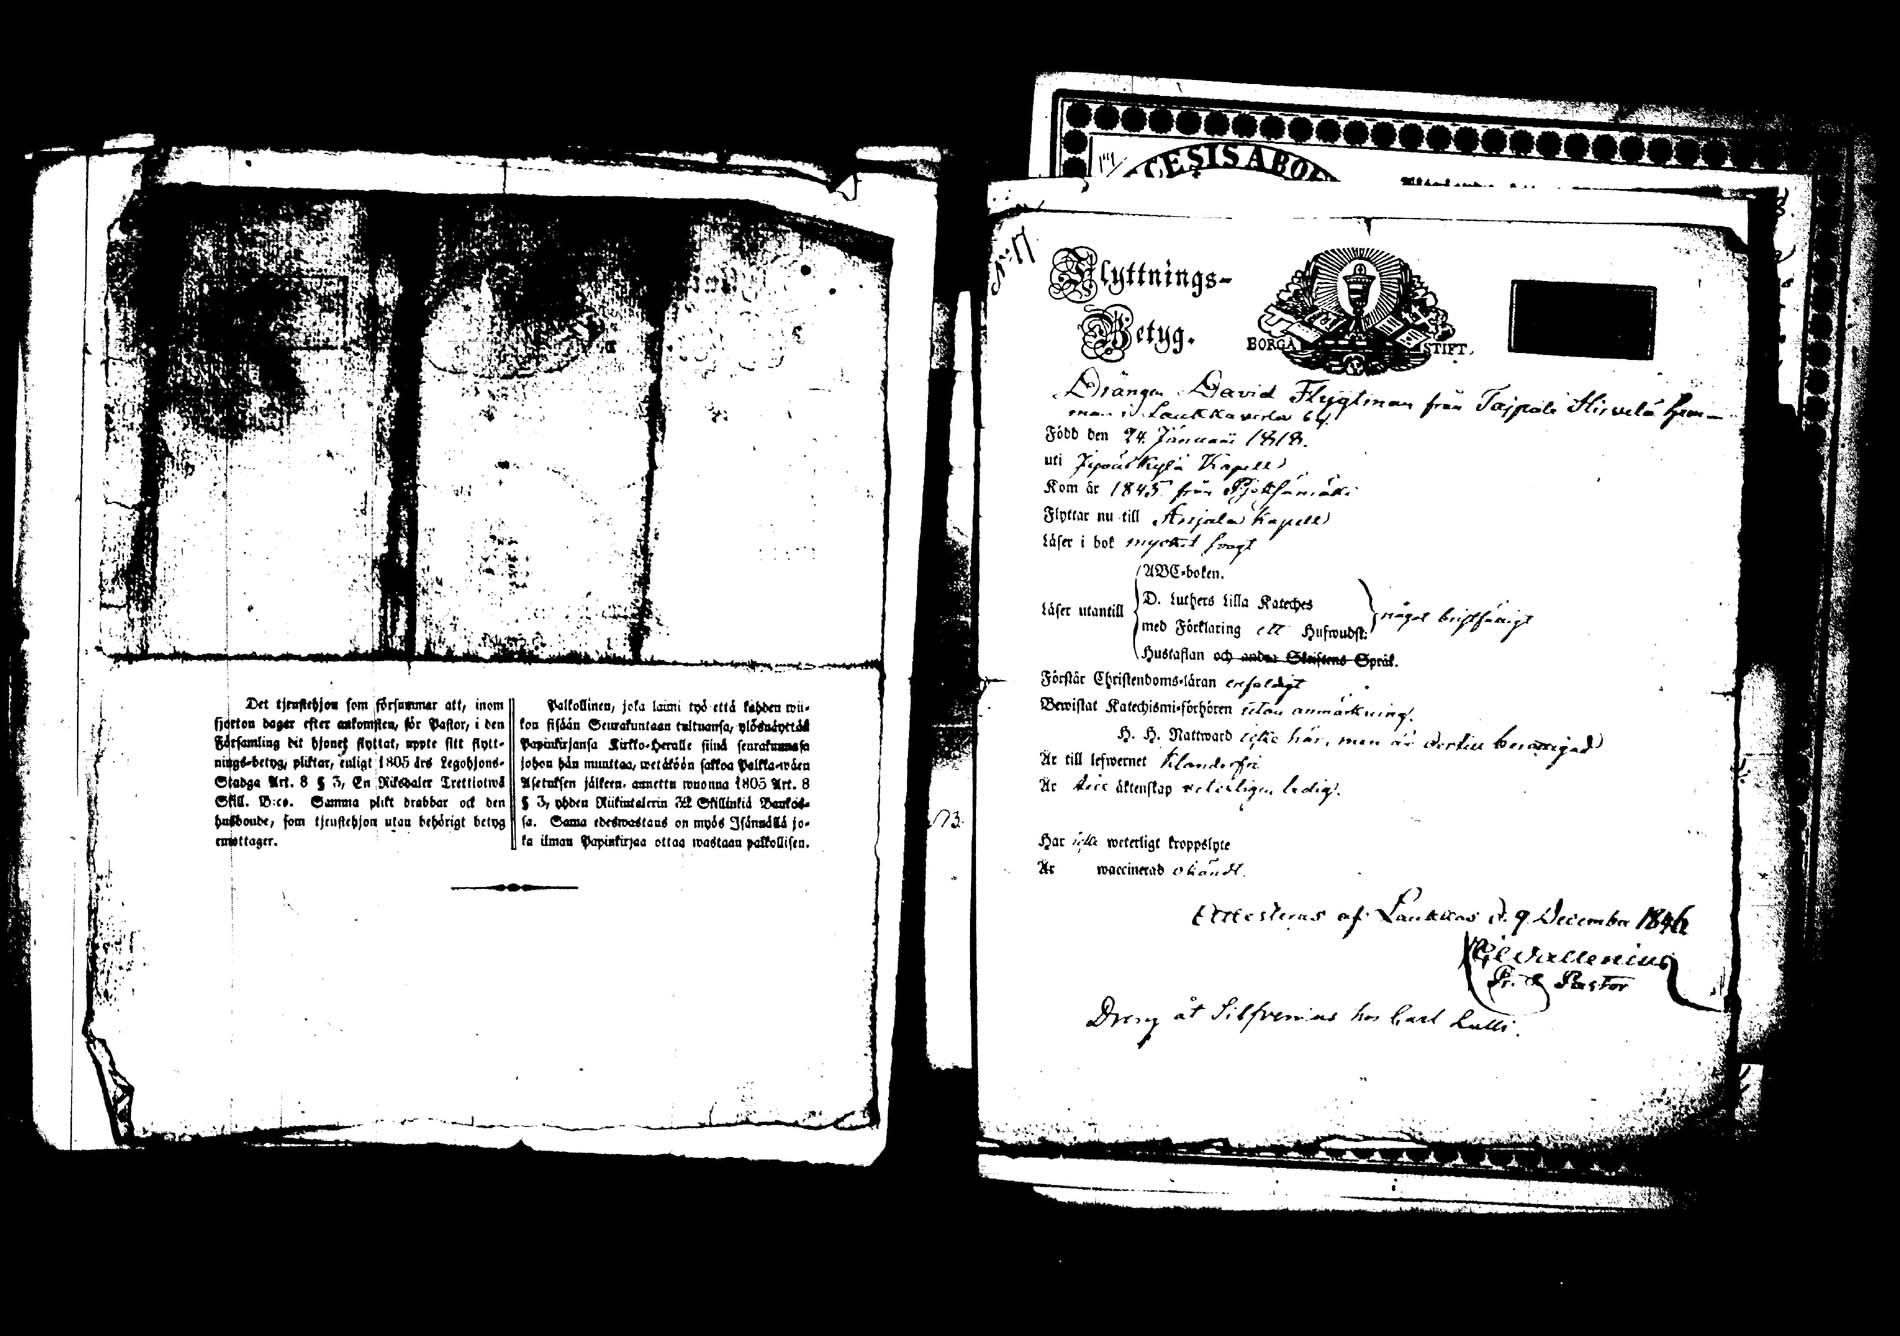 Det tjenstehjon som försummar att, inom
fjorton dagar efter ankomsten, för Pastor, i den
Församling dit hjonet flyttat, uppte sitt flytt-
nings-betyg, pliktar, enligt 1805 års Legohjons-
Stadga Art. 8 § 3, En Riksdaler Trettiotwå
Skill. B:co. Samma plikt drabbar ock den
husbonde, som tjenstehjon utan behörigt betyg
emottager.
Palkollinen, joka laimi lyö että kahden wii-
kon sisään Seurakuntaan tultuansa, ylösnäyttää
Papinkirjansa Kirkko-Herralle siinä seurakunnasa
johon hän muuttaa, wetäköön sakkoa Palkka-wäen
Asetuksen jälkeen, annettu wuonna 1805 Art. 8
§ 3, yhden Riikintalerin 32 Skillinkiä Bankos-
sa. Sama edeswastaus on myös Isännällä jo-
ka ilman Papinkirjaa ottaa wastaan palkollisen.
CESIS ABOE
N:17
Flyttnings-
Betyg.
BORGÅ STIFT.
Drängen David Flygtman från Tajpale Hirvelä hem-
man i Laukkavirta 64.
Född den 24 Januari 1818.
uti Kapell
Kom år 1845 från
Flyttar nu till Anjala Kapell
Läser i bok mycket svagt
ABC-boken.
D. Luthers Lilla Kateches
Läser utantill något bristfälligt
med Förklaring ett Hufwudst.
Hustaflan och andra Skriftens Språk.
Förstår Christendoms-läran enfaldigt
Bewistat Katechismi-förhören utan anmärkning.
H. H. Nattward icke här, men är dertill berättigad
Är till lefwernet klanderfri
Är till äktenskap veterligen ledig.
Har icke weterligt kroppslyte
Är waccinerad okändt.
Attesteras af Laukkas d. 9 December 1846
Wallenius
Pastor
Dreng åt Silfvenius hos Carl